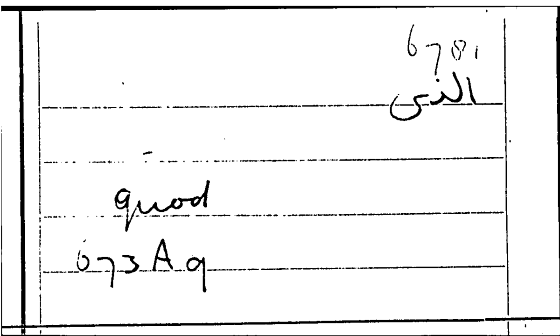 6781
الذى
quod
673 A 9